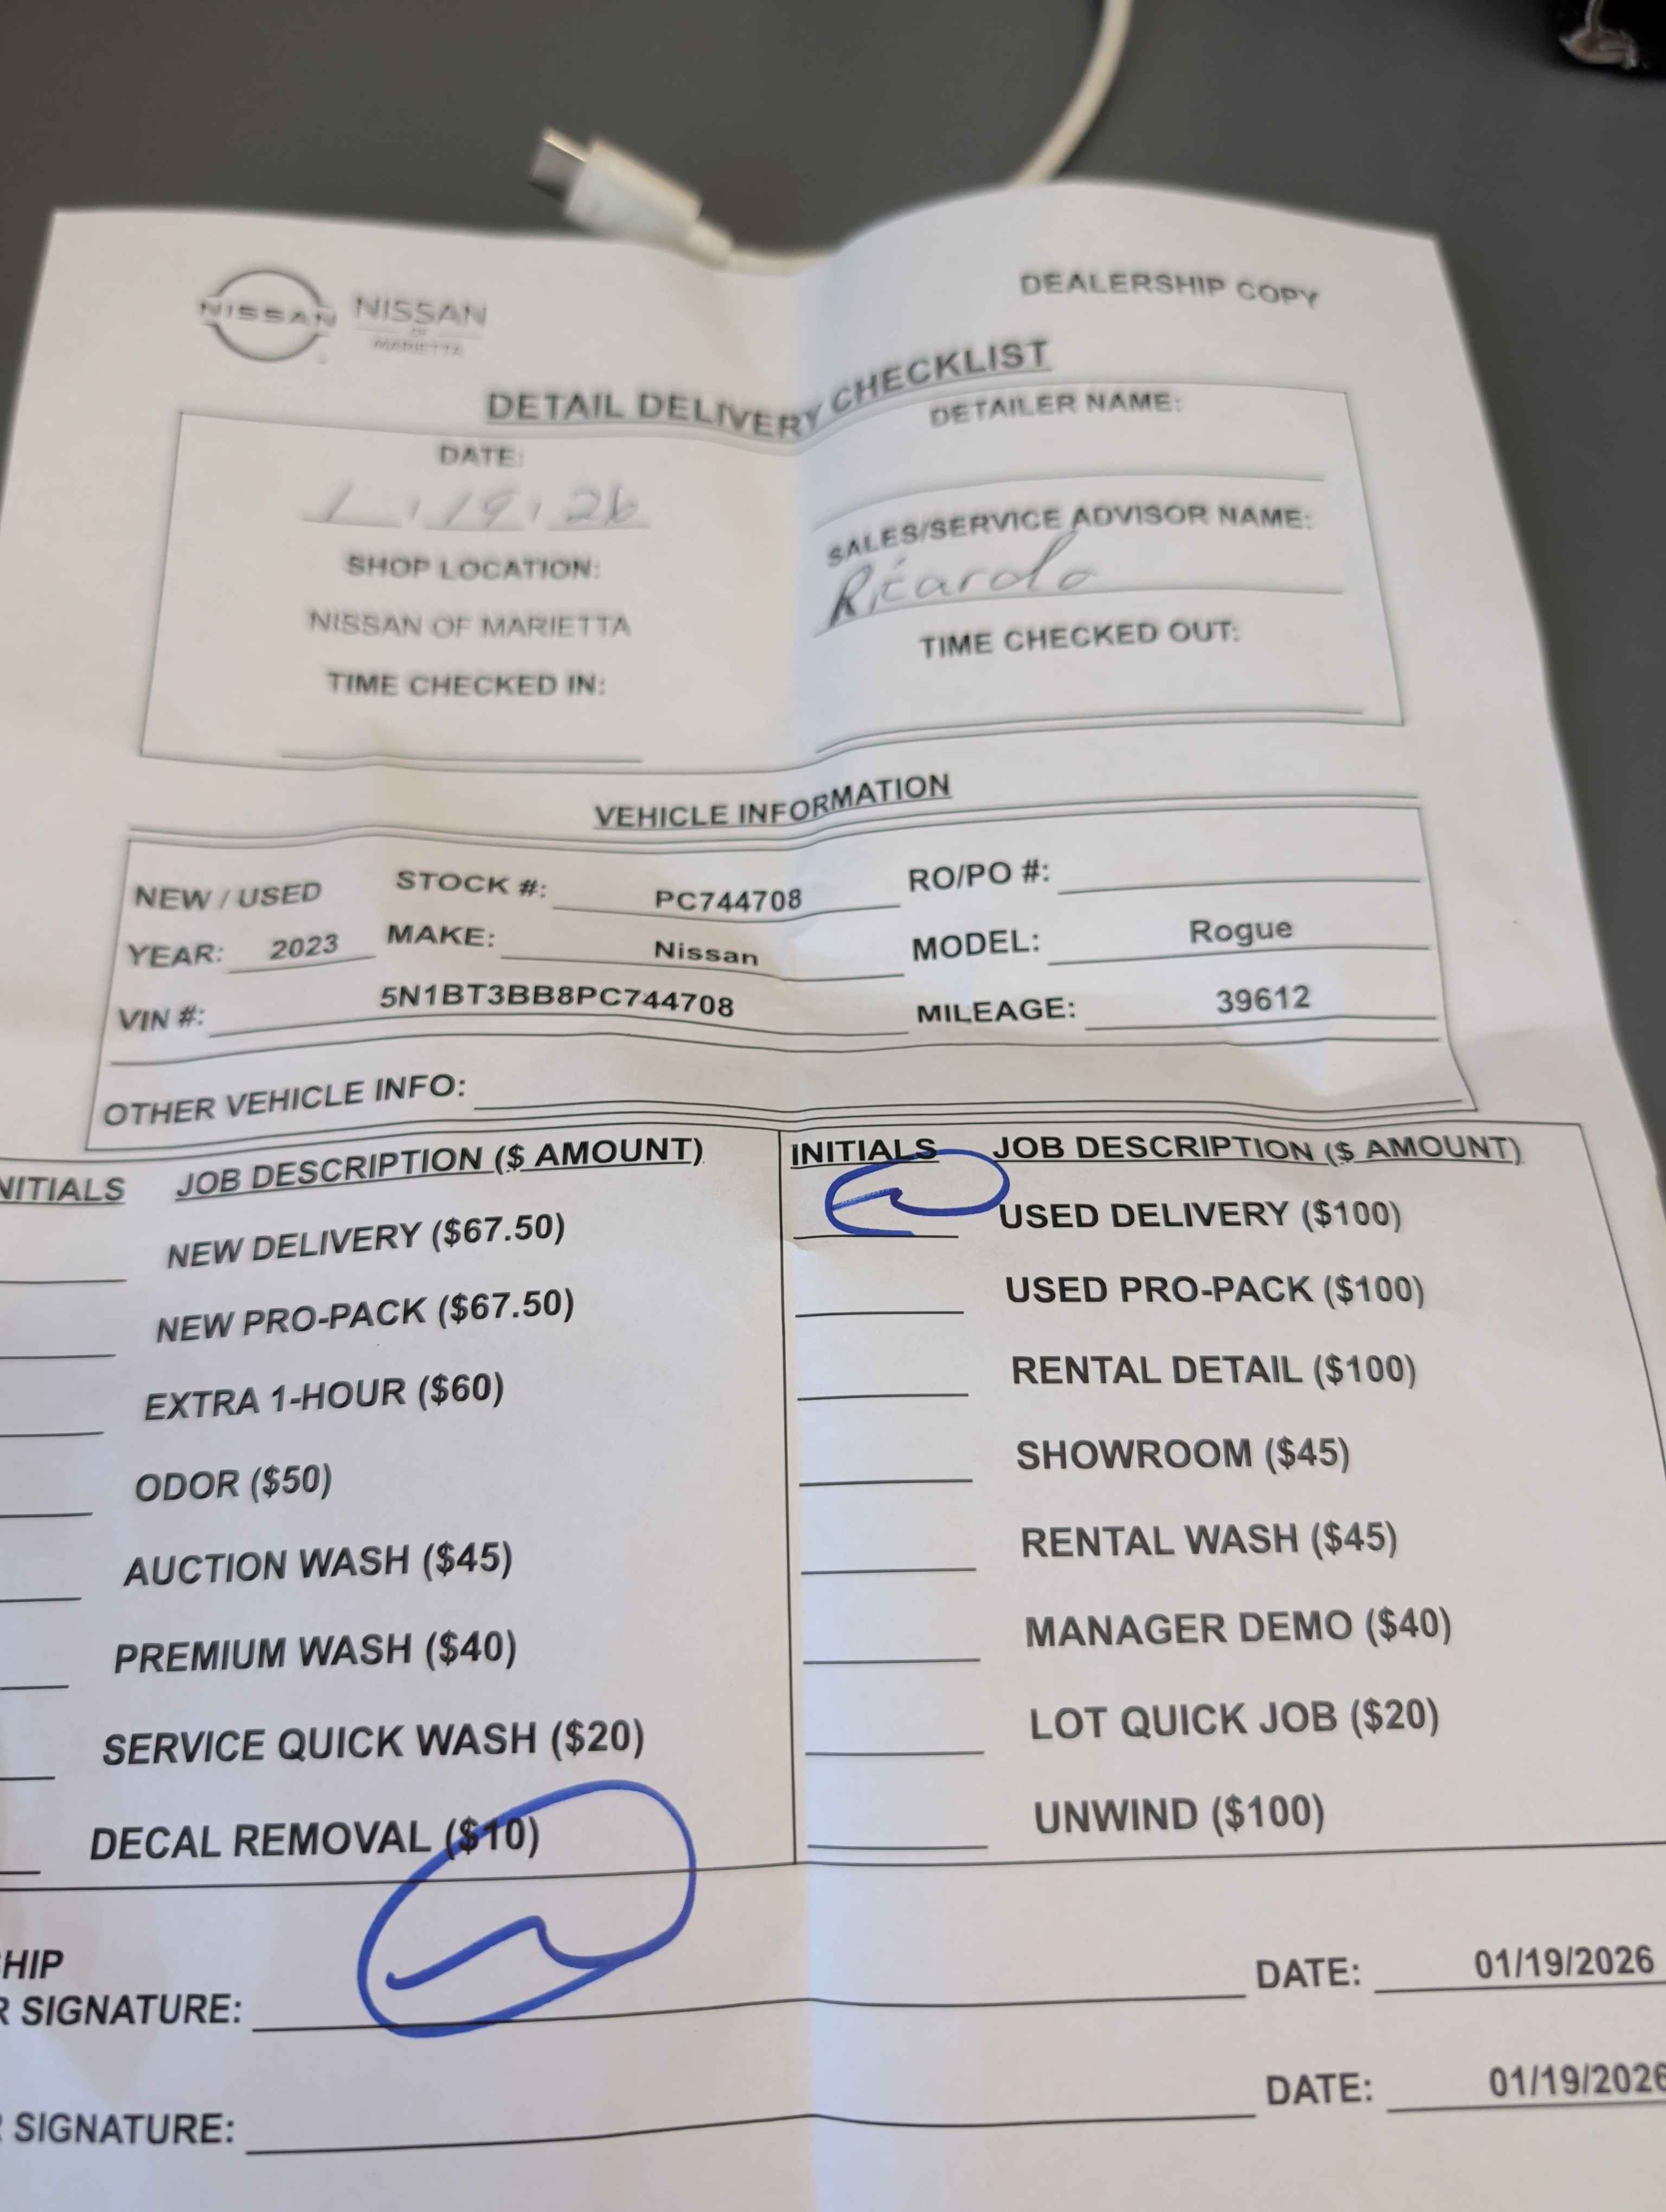 NISSAN
NISSAN
OF
MARIETTA
DEALERSHIP COPY
DETAIL DELIVERY CHECKLIST
DATE:
1 19 26
SHOP LOCATION:
NISSAN OF MARIETTA
TIME CHECKED IN:
DETAILER NAME:
SALES/SERVICE ADVISOR NAME:
Ricardo
TIME CHECKED OUT:
VEHICLE INFORMATION
NEW / USED STOCK #: PC744708 RO/PO #:
YEAR: 2023 MAKE: Nissan MODEL: Rogue
VIN #: 5N1BT3BB8PC744708 MILEAGE: 39612
OTHER VEHICLE INFO:
NITIALS JOB DESCRIPTION ($ AMOUNT)
NEW DELIVERY ($67.50)
NEW PRO-PACK ($67.50)
EXTRA 1-HOUR ($60)
ODOR ($50)
AUCTION WASH ($45)
PREMIUM WASH ($40)
SERVICE QUICK WASH ($20)
DECAL REMOVAL ($10)
INITIALS JOB DESCRIPTION ($ AMOUNT)
USED DELIVERY ($100)
USED PRO-PACK ($100)
RENTAL DETAIL ($100)
SHOWROOM ($45)
RENTAL WASH ($45)
MANAGER DEMO ($40)
LOT QUICK JOB ($20)
UNWIND ($100)
HIP
R SIGNATURE: DATE: 01/19/2026
R SIGNATURE: DATE: 01/19/2026